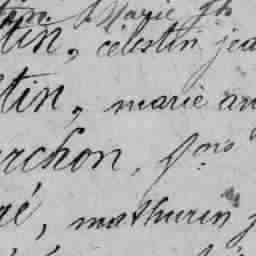 Marie
tin, célestin jea
tin, marie an
rchon, fnº
ré, mathurin j